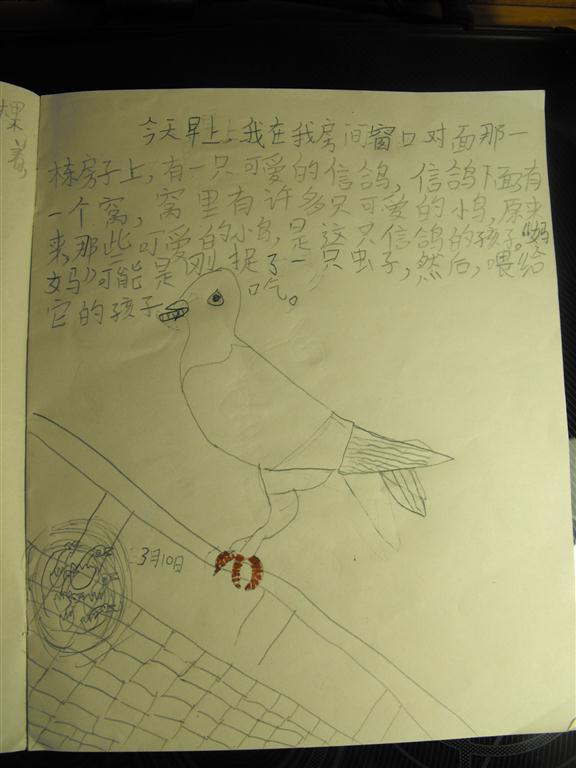 今天早上,我在我房间窗口对面那一
栋房子上,有一只可爱的信鸽,信鸽下面有
一个窝,窝里有许多只可爱的小鸟,原来
来,那些可爱的小鸟,是这只信鸽的孩子。“妈
妈”可能是刚捉了一只虫子,然后,喂给
它的孩子吃。
3月10日